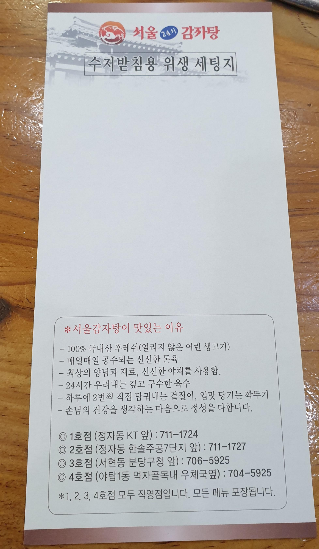 서울 24시 감자탕
수저받침용 위생 세팅지
※서울감자탕이 맛있는 이유
- 100% 국내산 우거지
- 매일매일 공수되는 신선한 돈육
- 최상의 양념과 재료, 신선한 야채를 사용함.
- 24시간 우려내는 깊고 구수한 육수
- 하루에 2번씩 직접 담궈내는 겉절이, 입맛 당기는 깍두기
- 손님의 건강을 생각하는 마음으로 정성을 다합니다.
◎ 1호점 (정자동 KT 앞) : 711-1724
◎ 2호점 (정자동 한솔주공7단지 앞) : 711-1727
◎ 3호점 (서현동 분당구청 앞) : 706-5925
◎ 4호점 (야탑1동 먹자골목내 우체국옆) : 704-5925
*1, 2, 3, 4호점 모두 직영점입니다. 모든 메뉴 포장됩니다.